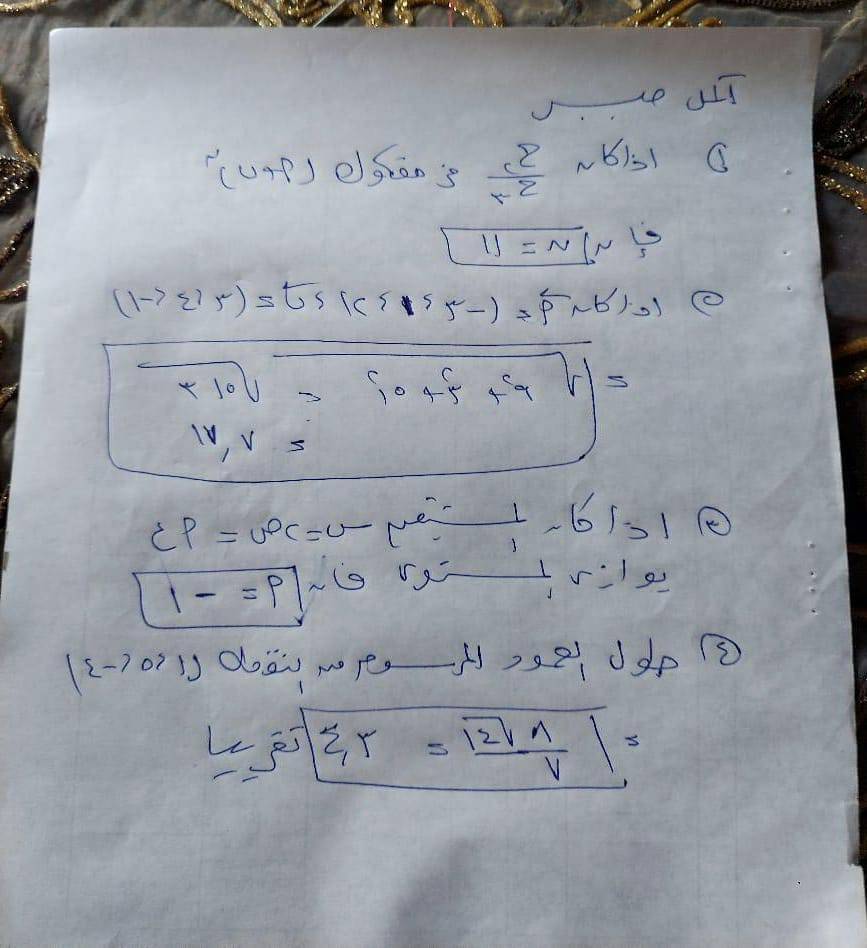 أكمل جبر
① اذا كان ح٢/ح٣ من مفكوك (٢+ب)ⁿ
فإن ن = ١١
② اذا كان أ = (-٣، ١، ٢) ، ب = (٣، ٤، -١)
= √(٩² + ٣² + ١٥²) = √٣١٥
= ١٧,٧
③ اذا كان المستقيم س = ٢ص = أع
يوازى المستوى فان أ = -١
④ طول العمود المرسوم من النقطة (١، ٥، -٤)
= ٨√١٤/٧ = ٤,٣ تقريبا